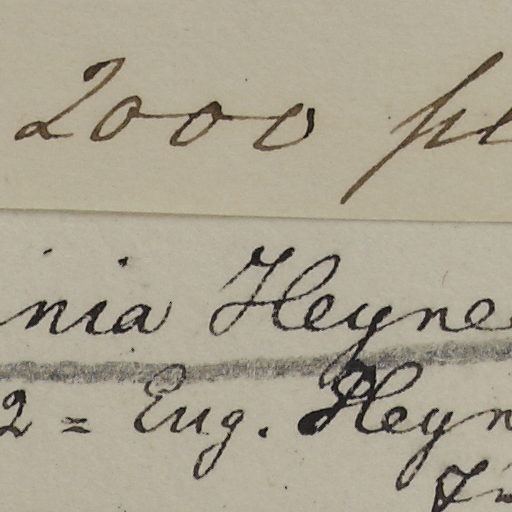 2000 pe
inia Heyne
2 = Eug. Heyn